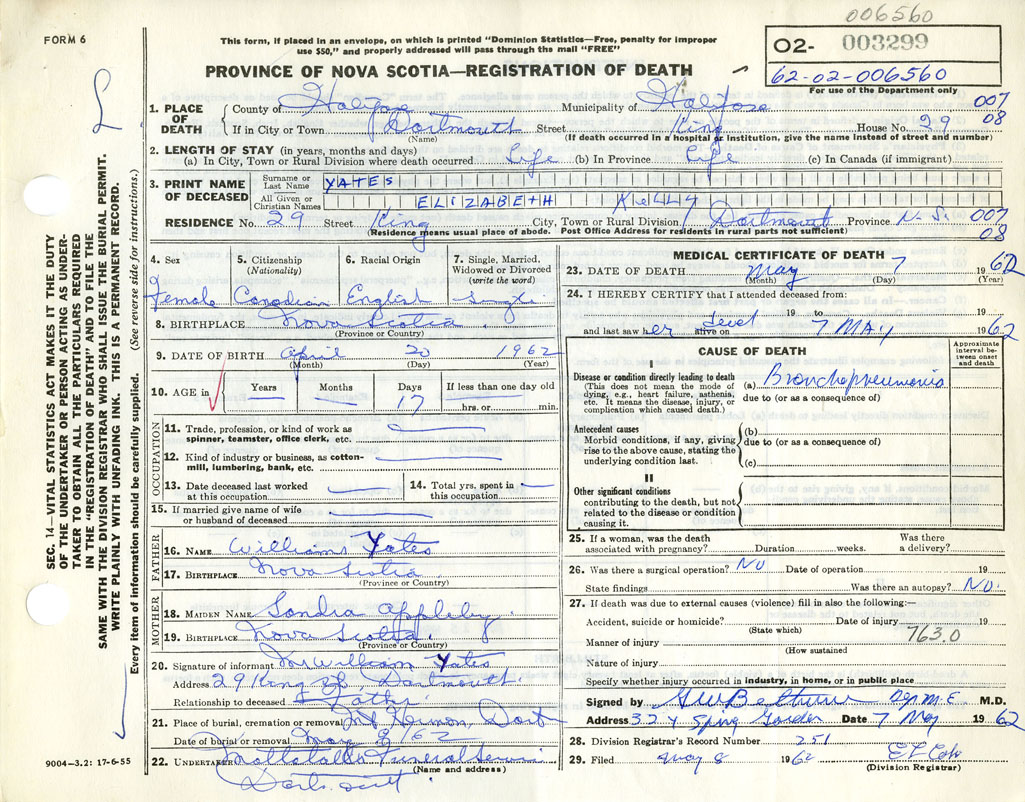 006560
FORM 6
This form, if placed in an envelope, on which is printed "Dominion Statistics—Free, penalty for improper
use $50," and properly addressed will pass through the mail "FREE"
O2- 003299
62-02-006560
For use of the Department only
PROVINCE OF NOVA SCOTIA—REGISTRATION OF DEATH
1. PLACE OF DEATH County of Halifax Municipality of Halifax 007
If in City or Town Dartmouth Street King House No. 29 08
(Name) (If death occurred in a hospital or institution, give the name instead of street and number)
2. LENGTH OF STAY (in years, months and days)
(a) In City, Town or Rural Division where death occurred Life (b) In Province Life (c) In Canada (if immigrant)
3. PRINT NAME OF DECEASED Surname or Last Name YATES
All Given or Christian Names ELIZABETH KELLY
RESIDENCE No. 29 Street King City, Town or Rural Division Dartmouth Province N.S. 007
(Residence means usual place of abode. Post Office Address for residents in rural parts not sufficient) 08
4. Sex Female
5. Citizenship (Nationality) Canadian
6. Racial Origin English
7. Single, Married, Widowed or Divorced (write the word) Single
8. BIRTHPLACE Nova Scotia
(Province or Country)
9. DATE OF BIRTH April 20 1962
(Month) (Day) (Year)
10. AGE in Years Months Days If less than one day old
17 hrs. or min.
OCCUPATION
11. Trade, profession, or kind of work as
spinner, teamster, office clerk, etc.
12. Kind of industry or business, as cotton-
mill, lumbering, bank, etc.
13. Date deceased last worked
at this occupation
14. Total yrs. spent in
this occupation
15. If married give name of wife
or husband of deceased
FATHER
16. NAME William Yates
17. BIRTHPLACE Nova Scotia
(Province or Country)
MOTHER
18. MAIDEN NAME Sondra Appleby
19. BIRTHPLACE Nova Scotia
(Province or Country)
20. Signature of informant Mr William Yates
Address 29 King St, Dartmouth
Relationship to deceased Father
21. Place of burial, cremation or removal Mt Hermon, Dart
Date of burial or removal May 8/62
22. UNDERTAKER Mattatalls Funeral Service
(Name and address)
Dartmouth
MEDICAL CERTIFICATE OF DEATH
23. DATE OF DEATH May 7 1962
(Month) (Day) (Year)
24. I HEREBY CERTIFY that I attended deceased from:
19 to 19
and last saw her dead alive on 7 MAY 1962
CAUSE OF DEATH
Approximate interval between onset and death
I
Disease or condition directly leading to death
(This does not mean the mode of
dying, e.g., heart failure, asthenia,
etc. It means the disease, injury, or
complication which caused death.)
(a) Bronchopneumonia
due to (or as a consequence of)
Antecedent causes
Morbid conditions, if any, giving
rise to the above cause, stating the
underlying condition last.
(b)
due to (or as a consequence of)
(c)
II
Other significant conditions
contributing to the death, but not
related to the disease or condition
causing it.
25. If a woman, was the death
associated with pregnancy? Duration weeks. Was there a delivery?
26. Was there a surgical operation? NO Date of operation 19
State findings Was there an autopsy? NO.
27. If death was due to external causes (violence) fill in also the following:—
Accident, suicide or homicide? Date of injury 19
(State which) 763.0
Manner of injury
(How sustained
Nature of injury
Specify whether injury occurred in industry, in home, or in public place
Signed by M.D.
Address 3224 Spring Garden Date 7 May 1962
28. Division Registrar's Record Number 251
29. Filed May 8 1962
(Division Registrar)
SEC. 14—VITAL STATISTICS ACT MAKES IT THE DUTY
OF THE UNDERTAKER OR PERSON ACTING AS UNDER-
TAKER TO OBTAIN ALL THE PARTICULARS REQUIRED
IN THE "REGISTRATION OF DEATH" AND TO FILE THE
SAME WITH THE DIVISION REGISTRAR WHO SHALL ISSUE THE BURIAL PERMIT.
WRITE PLAINLY WITH UNFADING INK. THIS IS A PERMANENT RECORD.
Every item of information should be carefully supplied. (See reverse side for instructions.)
9004—3.2: 17-6-55